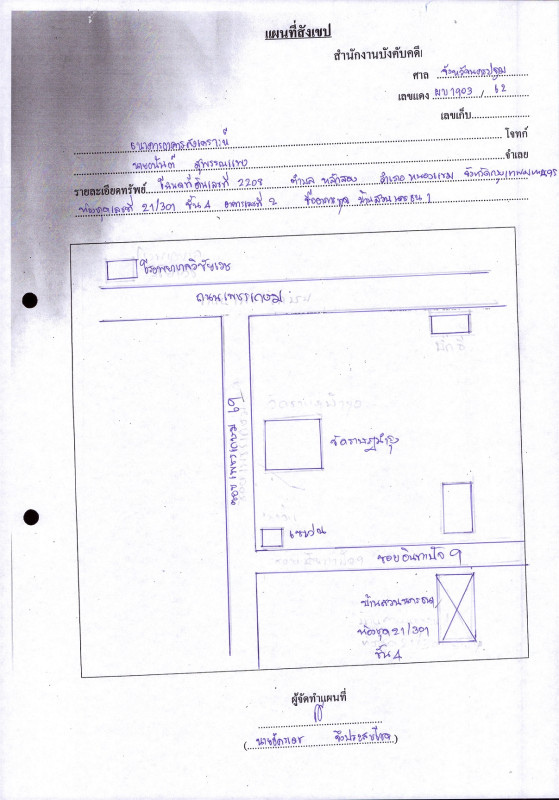 แผนที่สังเขป
สำนักงานบังคับคดี
ศาล จังหวัดนครปฐม
เลขแดง ผบ 1903 / 62
เลขเก็บ
ธนาคารอาคารสงเคราะห์ โจทก์
สุพรรณแพง จำเลย
รายละเอียดทรัพย์ โฉนดที่ดินเลขที่ 2208 ตำบล หลักสอง อำเภอ หนองแขม จังหวัดกรุงเทพมหานคร
ห้องชุดเลขที่ 21/301 ชั้น 4 อาคารเลขที่ 2 ชื่ออาคารชุด บ้านสวน 1
โรงพยาบาลวิชัยเวช
ถนนเพชรเกษม
ซอย เพชรเกษม
วัดราษฎร์บำรุง
เซเว่น
ซอยอินทาปัจ 9
บ้านสวน
ห้องชุด 21/301
ชั้น 4
ผู้จัดทำแผนที่